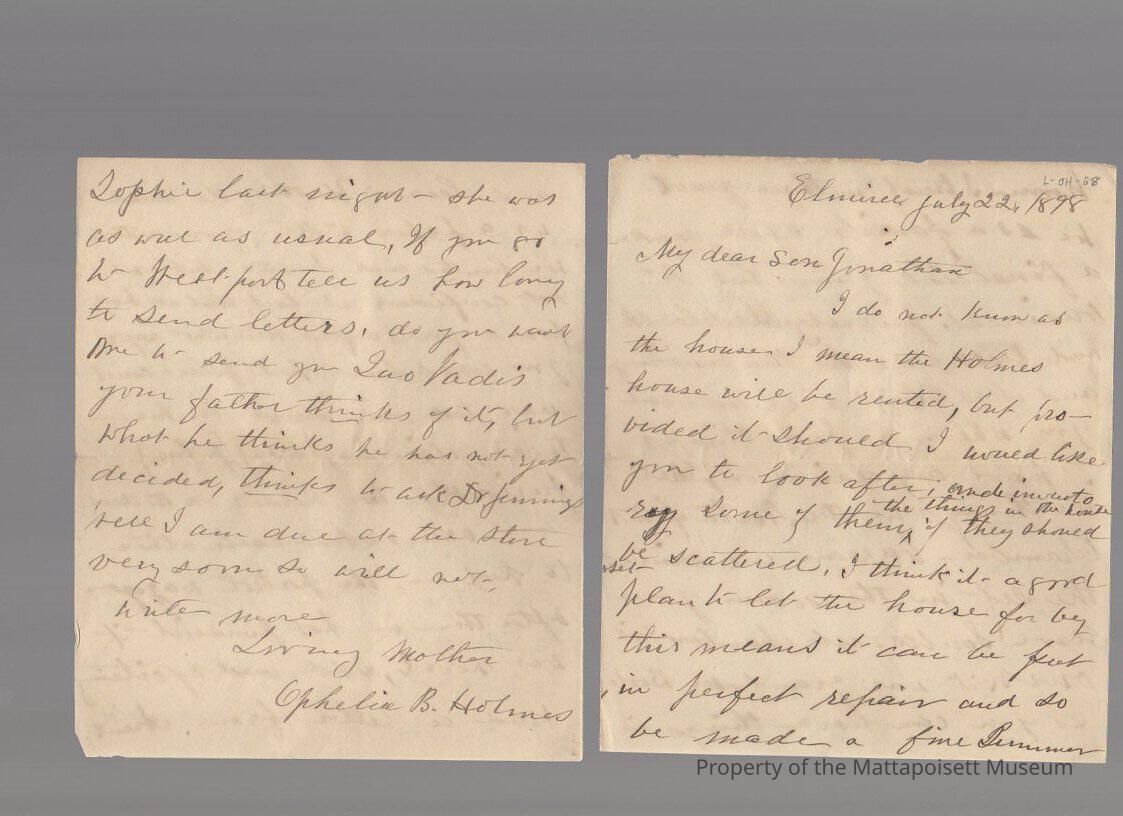 L-OH-38
Elmira July 22, 1898
My dear Son Jonathan
I do not know as
the house I mean the Holmes
house will be rented, but pro-
vided it should I would like
you to look after, and invento
ry some of them, if they should
the things in the house
be scattered. I think it a good
plan to let the house for by
this means it can be put
in perfect repair and so
be made a fine Summer
Sophie last night – she was
as well as usual, If you go
to Westport tell us how long
to send letters. do you want
me to send you Quo Vadis
your father thinks of it, but
what he thinks he has not yet
decided, thinks to ask Dr Jennings
well I am due at the store
very soon so will not
write more
Loving Mother
Ophelia B. Holmes
Property of the Mattapoisett Museum